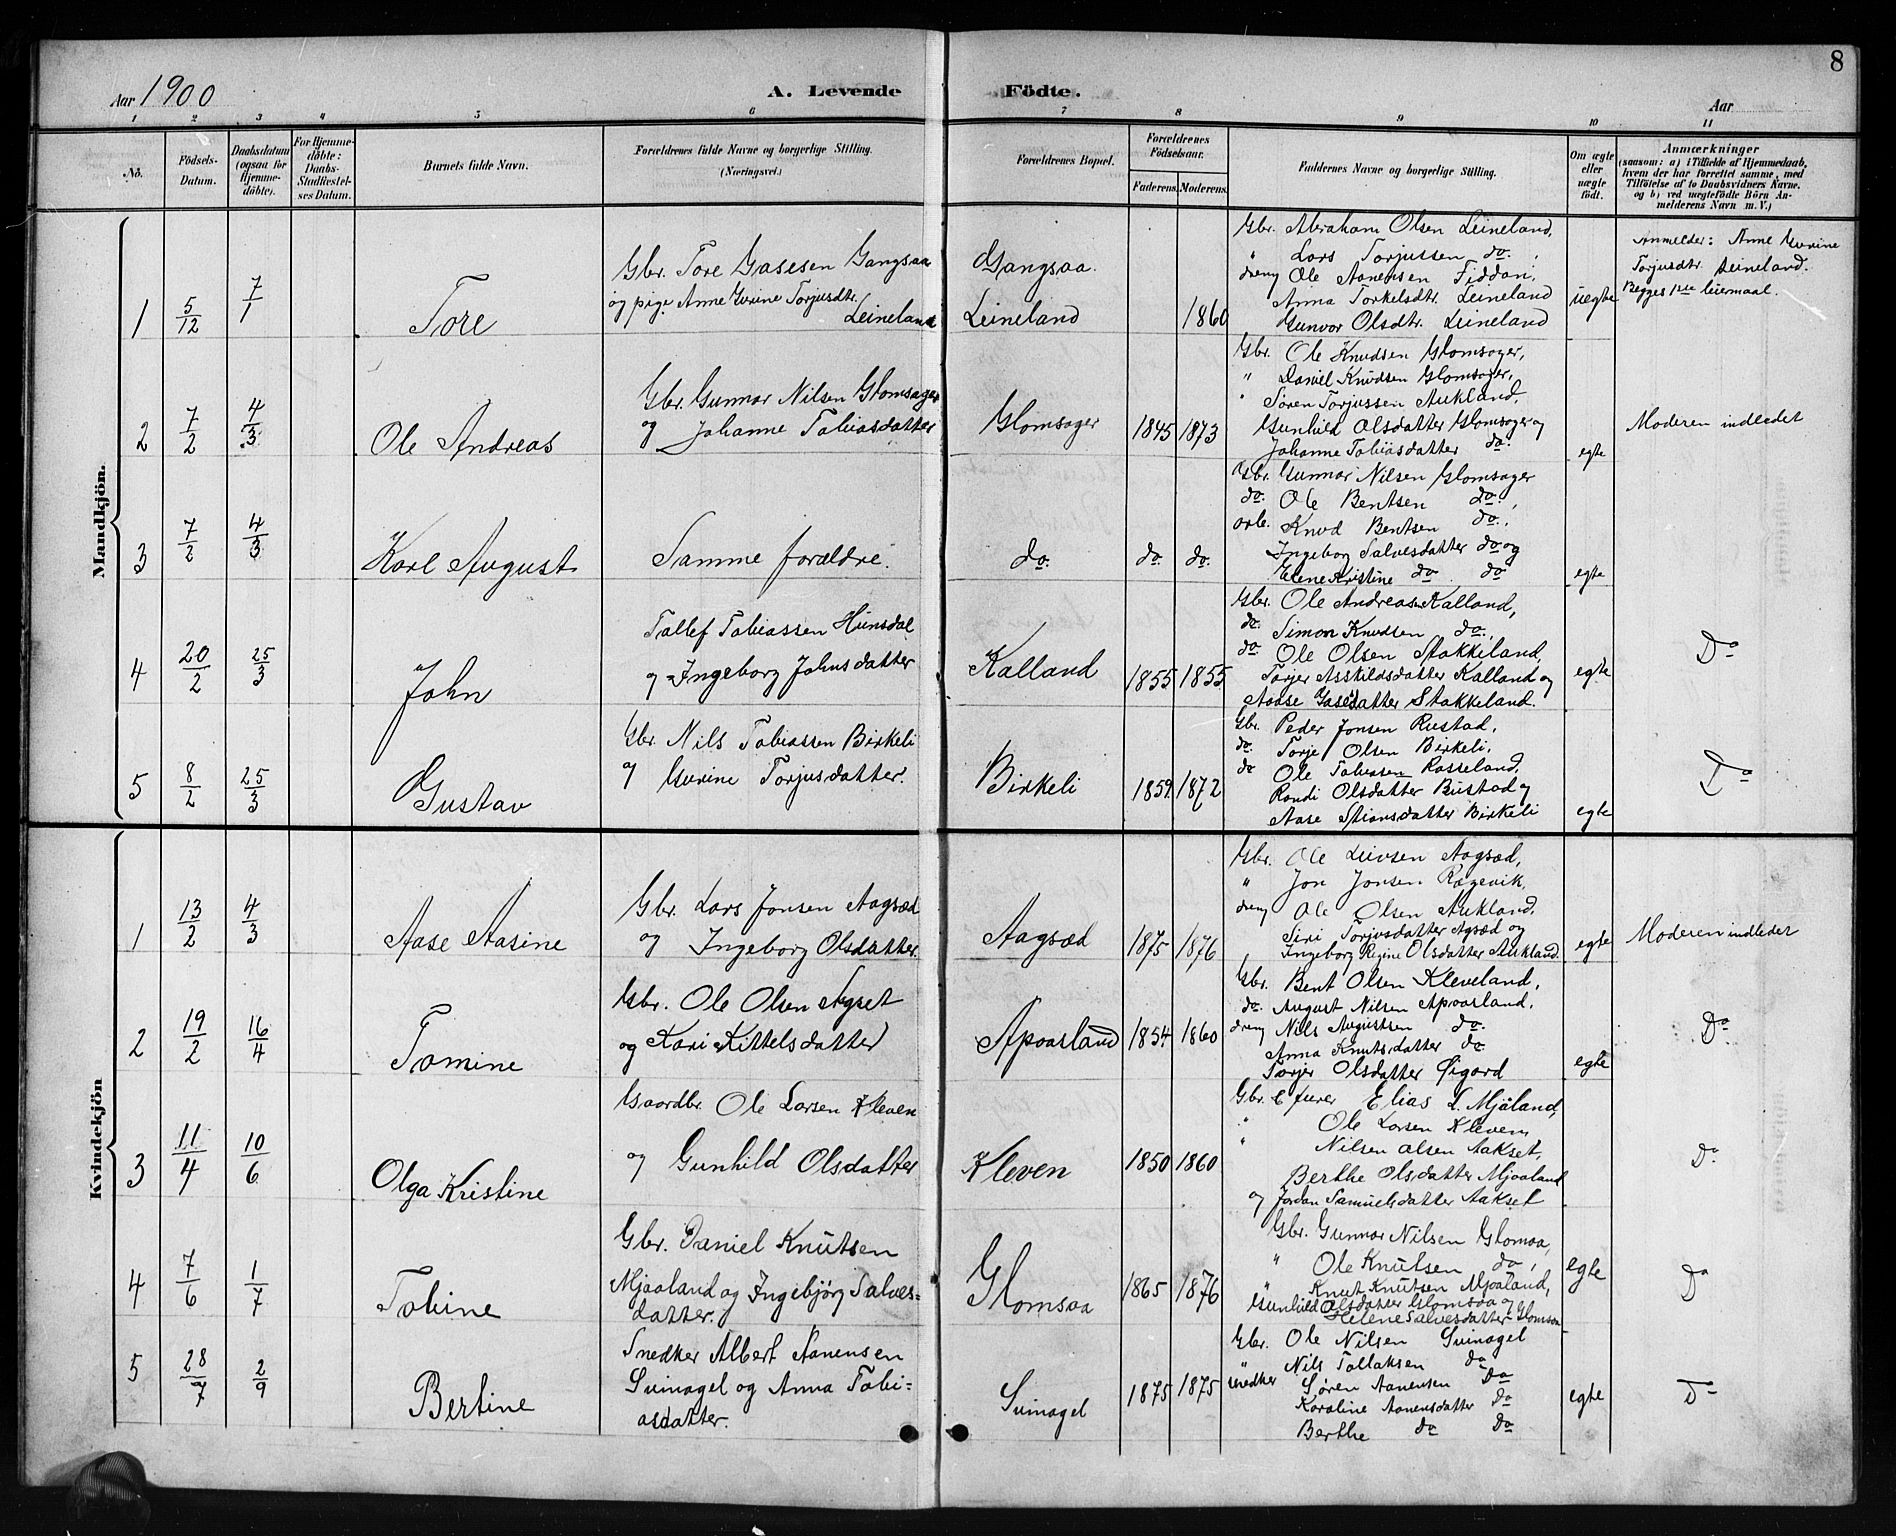 8
Aar 1900
A. Levende
Födte.
Aar
1 2 3 4 5 6 7 8 9 10 11
No.
Födsels-
Datum.
Daabsdatum
(ogsaa for
Hjemme-
döbte).
For Hjemme-
döbte:
Daabs-
Stadfæstel-
ses Datum.
Barnets fulde Navn.
Forældrenes fulde Navne og borgerlige Stilling.
(Næringsvei.)
Forældrenes Bopæl.
Forældrenes
Födselsaar.
Faderens.
Moderens.
Faddernes Navne og borgerlige Stilling.
Om ægte
eller
uægte
födt.
Anmærkninger
(saasom: a) i Tilfælde af Hjemmedaab,
hvem der har forrettet samme, med
Tilföielse af to Daabsvidners Navne.
og b) ved uægtefödte Börn An-
melderens Navn m. V.)
Mandkjön.
1
5/12
7/1
Tore
Gbr. Tore Gasesen Gangsaa
og pige Anne Gurine Torjusdtr.
Leineland
Gangsaa.
Leineland
1860
Gbr. Abraham Olsen Leineland,
" Lars Torjussen do.,
dreng Ole Aanensen Fiddan,
Anna Torkelsdtr. Leineland
Gunvor Olsdtr. Leineland
uegte
Anmelder: Anne Gurine
Torjusdtr. Leineland.
Begges 1ste leiermaal.
2
7/2
4/3
Ole Andreas
Gbr. Gunnar Nilsen Glomsager
og Johanne Tobiasdatter
Glomsager
1845
1873
Gbr. Ole Knudsen Glomsager,
" Daniel Knudsen Glomsager,
" Søren Torjussen Aukland,
Gunhild Olsdatter Glomsager og
Johanne Tobiasdatter do.
egte
Moderen indledet
3
7/2
4/3
Karl August
Samme forældre.
do.
do.
do.
Gbr. Gunnar Nilsen Glomsager
do. Ole Bentsen do.,
arb. Knud Bentsen do.,
Ingeborg Salvesdatter do og
Elene Kristine do do
egte
4
20/2
25/3
John
Tallef Tobiassen Hunsdal
og Ingeborg Johnsdatter
Kalland
1855
1855
Gbr. Ole Andreasen Kalland,
do. Simon Knudsen do.,
do Ole Olsen Stakkeland,
Torjer Asskildsdatter Kalland og
Aaase Gasesdatter Stakkeland.
egte
Do
5
8/2
25/3
Gustav
Gbr. Nils Tobiassen Birkeli
og Gurine Torjusdatter.
Birkeli
1859
1872
Gbr. Peder Jonsen Rustad,
do. Torje Olsen Birkeli,
do Ole Tobiasen Rosseland,
Randi Olsdatter Bustad og
Aase Stiansdatter Birkeli
egte
Do
Kvindekjön
1
13/2
4/3
Aase Aasine
Gbr. Lars Jonsen Aagsæd
og Ingeborg Olsdatter.
Aagsæd
1875
1876
Gbr. Ole Leivsen Aagsæd,
" Jon Jonsen Rægevik,
dreng Ole Olsen Aukland,
Siri Torjusdatter Agsæd og
Ingeborg Regine Olsdatter Aukland
egte
Moderen indledet
2
19/2
16/4
Tomine
Gbr. Ole Olsen Agset
og Kari Kittelsdatter
Apaasland
1854
1860
Gbr. Bent Olsen Kleveland,
do. August Nilsen Apaasland,
dreng Nils Augustsen do.
Anna Knutsdatter do
Torjer Olsdatter Øigard
egte
Do
3
11/4
10/6
Olga Kristine
Gaardbr. Ole Larsen Kleven
og Gunhild Olsdatter
Kleven
1850
1860
Gbr. Elias L. Mjåland,
" Ole Larsen Kleven,
" Nilsen Olsen Aakset,
Berthe Olsdatter Mjaaland
og Jordan Samuelsdatter Aakset
Do
4
7/6
1/7
Tobine
Gbr. Daniel Knutsen
Mjaaland og Ingebjørg Salves-
datter.
Glomsaa
1865
1876
Gbr. Gunnar Nilsen Glomsaa,
" Ole Knutsen do,
" Knut Knutsen Mjaaland,
Gunhild Olsdatter Glomsaa og
Helene Salvesdatter Glomsaa
egte
Do
5
28/7
2/9
Bertine
Snedker Albert Aanensen
Svinagel og Anna Tobi-
asdatter.
Svinagel
1875
1875
Gbr. Ole Nilsen Svinagel
" Nils Tallaksen do
snedker Søren Aanensen do
Karoline Aanensdatter do
Berthe do do
egte
Do